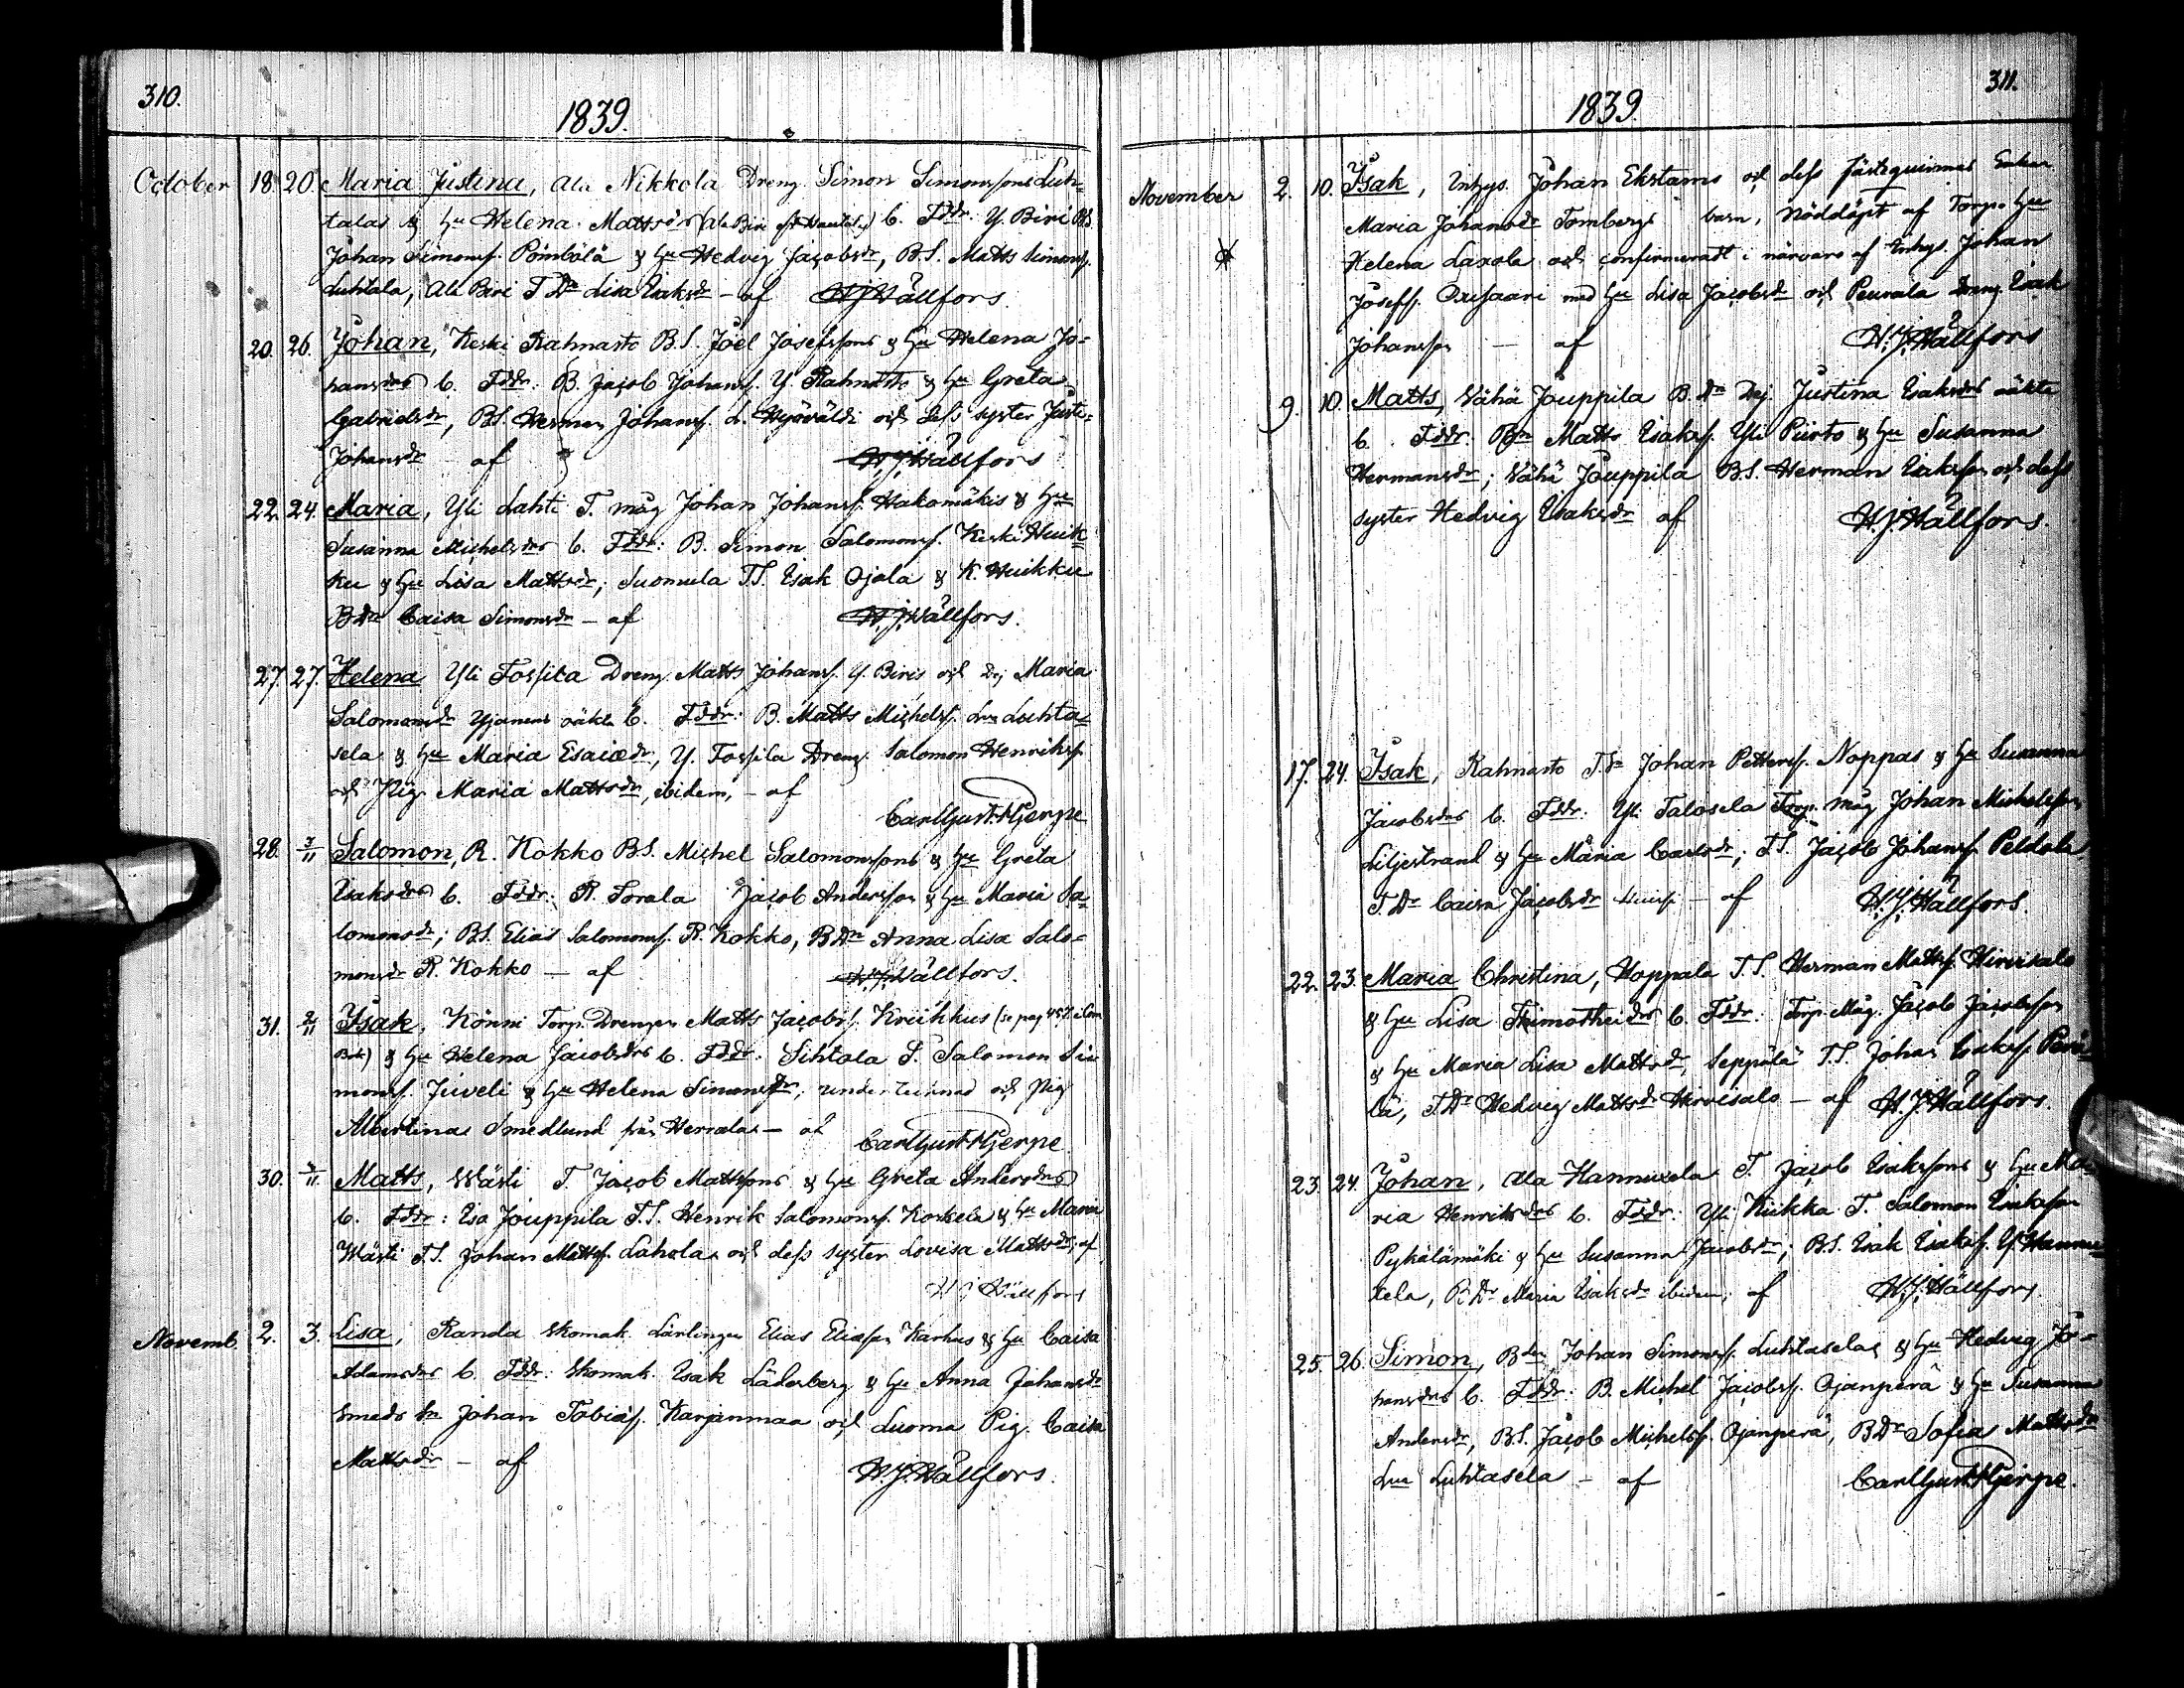 310.
1839.
October 18 20. Maria Justina, Ala Nikkola Dreng. Simon Simonssons Luh-
talas & Hu Helena Mattsdrs (Ala Biri) b. Fddr. Y. Biri BS.
Johan Simonss. Pömbölä & Hu Hedvig Jacobsdr, B.S. Matts Simonss.
Luhtala, Ala Biri T Dr Lisa Isaksdr – af H.J. Wållfors.
20. 26. Johan, Keski Rahnasto B.S. Joel Josefssons & Hu Helena Jo-
hansdrs b. Fddr: B. Jacob Johanss. Y. Rahnasto & Hu Greta
Gabrielsdr, BS. Herman Johanss. L. Hyöväldi och dess syster Justi-
Johansdr – af H.J. Wållfors
22. 24. Maria, Yli Lahti T. måg Johan Johanss. Hakomäkis & Hu
Susanna Michelsdrs b. Fddr: B. Simon Salomonss. Keski Huik-
ku & Hu Lisa Mattsdr; Suomela T.S. Isak Ojala & K. Huikku
BDr Caisa Simonsdr – af H.J. Wållfors.
27. 27. Helena Yli Tossila Dreng. Matts Johanss. Y. Biris och Maria
Salomonsdr oäkta b. Fddr: B. Matts Michelss. Luhta-
sela & Hu Maria Esaiædr, Y. Tossila Dreng. Salomon Henrikss.
och Pig. Maria Mattsdr, ibidem, – af
Carl Gust. Hjerpe
28. 3/11 Salomon, R. Kokko BS. Michel Salomonssons & Hu Greta
Isaksdrs b. Fddr: R. Sorala Jacob Andersson & Hu Maria Sa-
lomonsdr; BS. Elias Salomonss. R. Kokko, BDr Anna Lisa Salo-
monsdr R. Kokko – af H.J. Wållfors.
31. 2/11 Isak, Könni Torp. Drengen Matts Jacobss. Kriikkus (se pag 457 i Com
Bok) & Hu Helena Jacobsdrs b. Fddr: Sihtola T. Salomon Si-
monss. Juveli & Hu Helena Simonsdr, undertecknad och Pig
Albertina Smedlund från Herralas – af Carl Gust. Hjerpe
30. 3/11 Matts, Wästi T. Jacob Mattssons & Hu Greta Andersdrs
b. Fddr: Iso Jouppila T.S. Henrik Salomonss. Koskela & Hu Maria
Wästi T.S. Johan Mattss. Lahola och dess syster Lovisa Mattsdr, af
H J Wållfors
Novemb. 2. 3. Lisa, Randa Skomak. Lärlingen Elias Eliasson Karhus & Hu Caisa
Adamsdrs b. Fddr: Skomak. Isak Läderberg & Hu Anna Johansdr
Smeds Sn Johan Tobiass. Karjanmaa och Luoma Pig. Caisa
Mattsdr – af H.J. Wållfors.
311.
1839
November 2. 10. Isak, Inhys. Johan Ekstams och dess fästequinnas
Maria Johansdr Tombergs barn, nöddöpt af Torp. Hu
Helena Laxola och confirmeradt i närvaro af Inhys. Johan
Josefss. Oxisaari med Hu Lisa Jacobsdr och Peurala Dreng Isak
Johansson – af H.J. Wållfors
9. 10. Matts, Vähä Jouppila B.Dr Justina Isaksdrs oäkta
b. Fddr: Matts Isakss. Yli Piirto & Hu Susanna
Hermansdr; Vähä Jouppila B.S. Herman Isaksson och dess
syster Hedvig Isaksdr af H.J. Wållfors.
17. 24. Isak, Rahnasto T.Sn Johan Petterss. Noppas & Hu Susanna
Jacobsdrs b. Fddr: Yli Talosela Torp. måg Johan Michelsson
Liljestrand & Hu Maria Carlsdr; T.S. Jacob Johanss. Peldola
T.Dr Caisa Jacobsdr – af H.J. Wållfors.
22. 23. Maria Christina, Hoppala T.S. Herman Mattss. Hirvisalo
& Hu Lisa Thimotheidrs b. Fddr: Torp. Måg. Jacob Jacobsson
& Hu Maria Lisa Mattsdr, Seppälä T.S. Johan Isakss. Perä-
lä, T.Dr Hedvig Mattsdr Hirvisalo – af H.J. Wållfors.
23. 24. Johan, Ala Hannuxela T. Jacob Isakssons & Hu Ma-
ria Henriksdrs b. Fddr: Yli Kiikka T. Salomon Isaksson
Pykälämäki & Hu Susanna Jacobsdr; B.S. Isak Isakss. Y. Hannu-
xela, B.Dr Maria Isaksdr ibidem, af H.J. Wållfors
25. 26. Simon, Bdn Johan Simonss. Luhtaselas & Hu Hedvig Jo-
hansdrs b. Fddr: B. Michel Jacobss. Ojanperä & Hu Susanna
Andersdr, B.S. Jacob Michelss. Ojanperä, BDr Sofia Mattsdr
Luhtasela – af Carl Gust. Hjerpe.